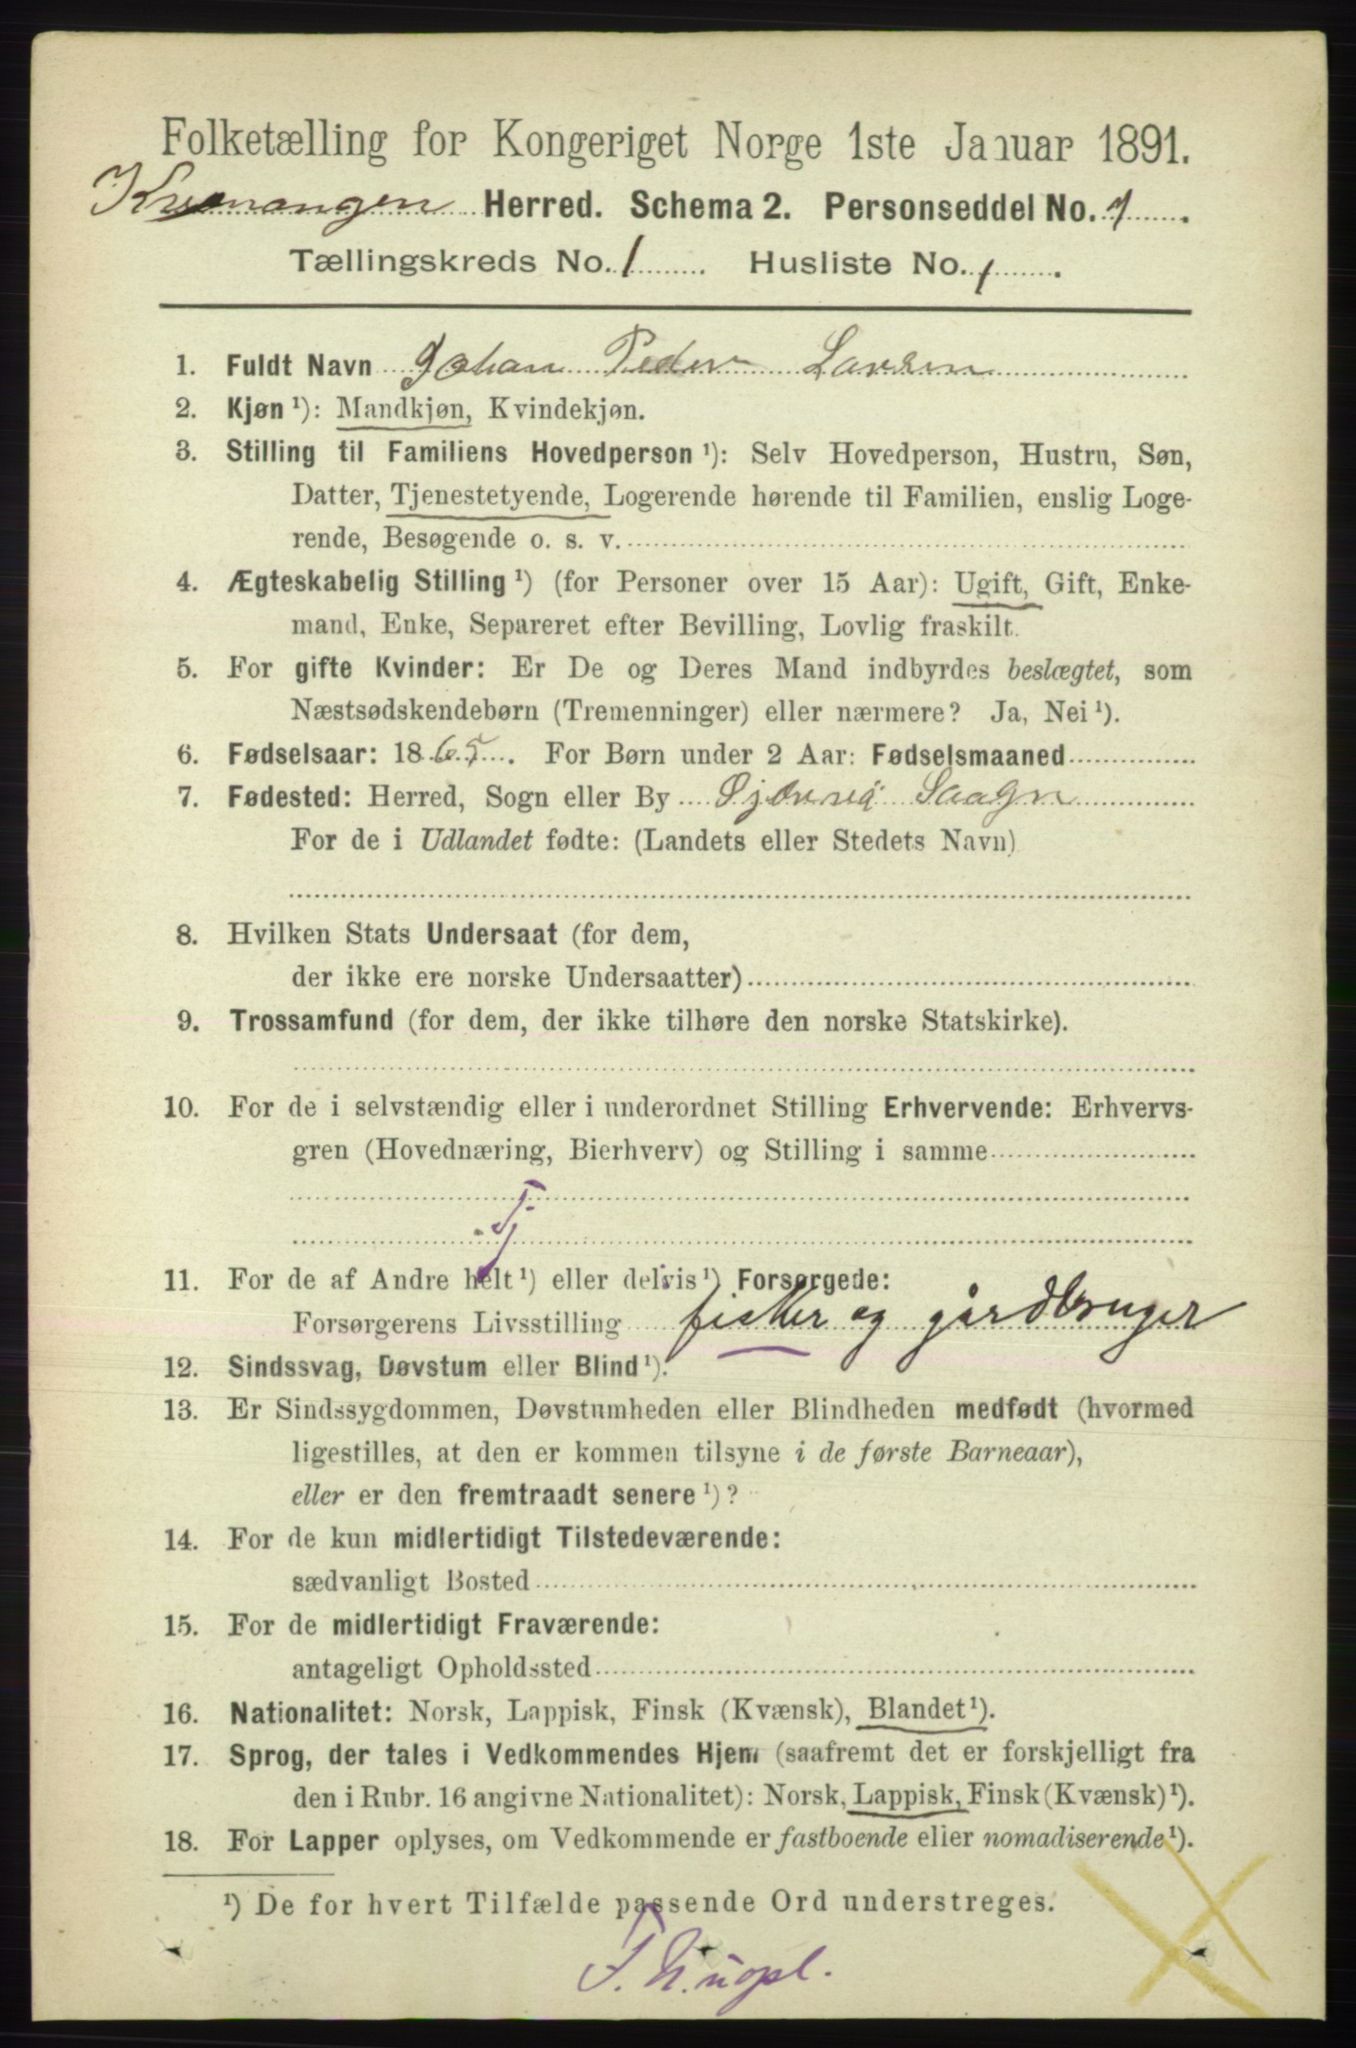 Folketælling for Kongeriget Norge 1ste Januar 1891.
Kvænangen Herred. Schema 2. Personseddel No. 7.
Tællingskreds No. 1 Husliste No. 1.
1. Fuldt Navn Johan Peder Larsen
2. Kjøn ¹): Mandkjøn, Kvindekjøn.
3. Stilling til Familiens Hovedperson ¹): Selv Hovedperson, Hustru, Søn,
Datter, Tjenestetyende, Logerende hørende til Familien, enslig Loge-
rende, Besøgende o. s. v.
4. Ægteskabelig Stilling ¹) (for Personer over 15 Aar): Ugift, Gift, Enke-
mand, Enke, Separeret efter Bevilling, Lovlig fraskilt.
5. For gifte Kvinder: Er De og Deres Mand indbyrdes beslægtet, som
Næstsødskendebørn (Tremenninger) eller nærmere? Ja, Nei ¹).
6. Fødselsaar: 1865. For Børn under 2 Aar: Fødselsmaaned
7. Fødested: Herred, Sogn eller By
For de i Udlandet fødte: (Landets eller Stedets Navn)
8. Hvilken Stats Undersaat (for dem,
der ikke ere norske Undersaatter)
9. Trossamfund (for dem, der ikke tilhøre den norske Statskirke).
10. For de i selvstændig eller i underordnet Stilling Erhvervende: Erhvervs-
gren (Hovednæring, Bierhverv) og Stilling i samme
Tj
11. For de af Andre helt ¹) eller delvis ¹) Forsørgede:
Forsørgerens Livsstilling fisker og gårdbruger
12. Sindssvag, Døvstum eller Blind ¹).
13. Er Sindssygdommen, Døvstumheden eller Blindheden medfødt (hvormed
ligestilles, at den er kommen tilsyne i de første Barneaar),
eller er den fremtraadt senere ¹)?
14. For de kun midlertidigt Tilstedeværende:
sædvanligt Bosted
15. For de midlertidigt Fraværende:
antageligt Opholdssted
16. Nationalitet: Norsk, Lappisk, Finsk (Kvænsk), Blandet ¹).
17. Sprog, der tales i Vedkommendes Hjem (saafremt det er forskjelligt fra
den i Rubr. 16 angivne Nationalitet): Norsk, Lappisk, Finsk (Kvænsk) ¹).
18. For Lapper oplyses, om Vedkommende er fastboende eller nomadiserende ¹).
¹) De for hvert Tilfælde passende Ord understreges.